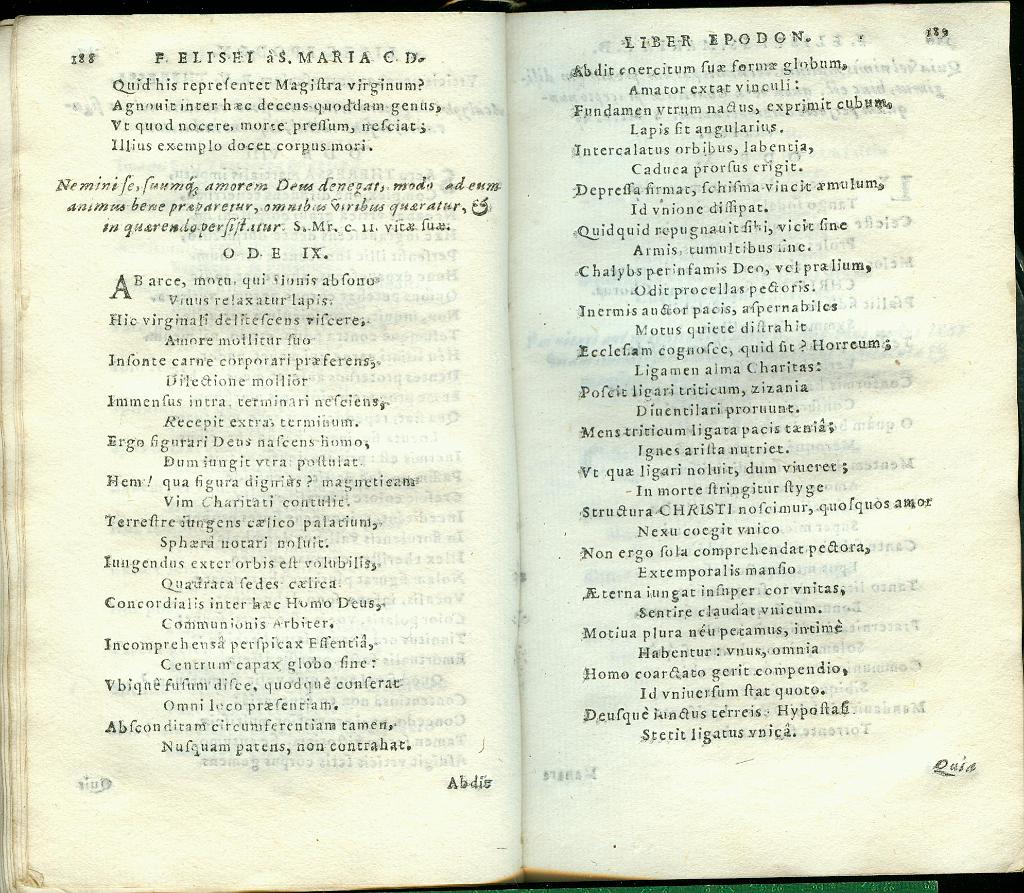 188 F. ELISEI àS. MARIA C D.
Quid his repreſentet Magiſtra virginum?
Agnouit inter hæc decens quoddam genus,
Vt quod nocere, morte preſſum, neſciat;
Illius exemplo docet corpus mori.
Nemini ſe, ſuumq; amorem Deus denegat, modo ad eum
animus bene præparetur, omnibus viribus quæratur, &
in quærendo perſiſtatur. S. Mr. c. 11. vitæ ſuæ.
O D E IX.
AB arce, motu, qui Sionis abſono
Viuus relaxatur lapis.
Hic virginali deliteſcens viſcere,
Amore mollitur ſuo
Inſonte carne corporari præferens,
Dilectione mollior
Immenſus intra, terminari neſciens,
Recepit extra terminum.
Ergo figurari Deus naſcens homo,
Dum iungit vtra poſtulat.
Hem! qua figura dignius? magneticam
Vim Charitati contulit.
Terreſtre iungens cælico palatium,
Sphæra notari noluit.
Iungendus exter orbis eſt volubilis,
Quadrata ſedes cælica.
Concordialis inter hæc Homo Deus,
Communionis Arbiter.
Incomprehensâ perſpicax Eſſentiâ,
Centrum capax globo ſine:
Vbiquè fuſum diſce, quodquè conſerat
Omni loco præſentiam.
Abſconditam circumferentiam tamen,
Nuſquam patens, non contrahat.
Abdit
LIBER EPODON. 189
Abdit coercitum ſuæ formæ globum,
Amator extat vinculi:
Fundamen vtrum nactus, exprimit cubum,
Lapis ſit angularius.
Intercalatus orbibus, labentia,
Caduca prorſus erigit.
Depreſſa firmat, ſchiſma vincit æmulum,
Id vnione diſſipat.
Quidquid repugnauit ſibi, vicit ſine
Armis, tumultibus ſine.
Chalybs perinfamis Deo, vel prælium,
Odit procellas pectoris.
Inermis auctor pacis, aſpernabiles
Motus quiete diſtrahit.
Eccleſiam cognoſce, quid ſit? Horreum;
Ligamen alma Charitas:
Poſcit ligari triticum, zizania
Diuentilari proruunt.
Mens triticum ligata pacis tæniâ;
Ignes ariſta nutriet.
Vt quæ ligari noluit, dum viueret;
In morte ſtringitur ſtyge
Structura CHRISTI noſcimur, quoſquos amor
Nexu coegit vnico
Non ergo ſola comprehendat pectora,
Extemporalis manſio.
Æterna iungat inſuper cor vnitas,
Sentire claudat vnicum.
Motiua plura néu petamus, intimè
Habentur: vnus, omnia
Homo coarctato gerit compendio,
Id vniuerſum ſtat quoto.
Deuſquè iunctus terreis Hypoſtaſi
Stetit ligatus vnicâ.
Quia